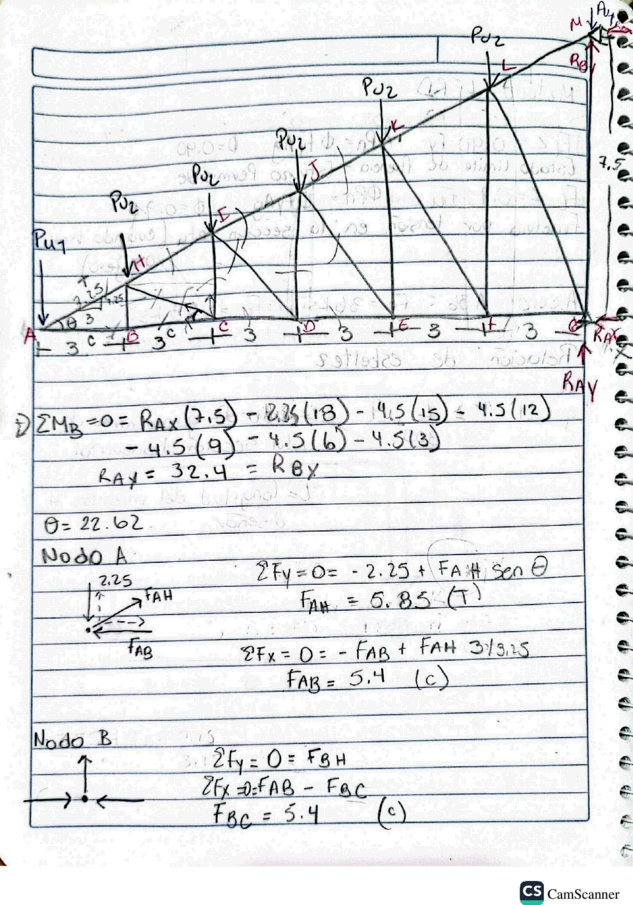 M Ay
RBy
Pu2
L
Pu2
K
Pu2
J
Pu2
I
Pu2
H
Pu1
7,5
2.25
1.25
T
A θ 3
3 C B 3 C C 3 D 3 E 3 F 3 G RAX
RAY
ΣMB = 0 = RAX(7,5) - 2.25(18) - 4.5(15) - 4.5(12)
- 4.5(9) - 4.5(6) - 4.5(3)
RAX = 32.4 = RBX
θ = 22.62
Nodo A
2.25
FAH
FAB
ΣFy = 0 = -2.25 + FAH sen θ
FAH = 5.85 (T)
ΣFx = 0 = - FAB + FAH 3/3.25
FAB = 5.4 (C)
Nodo B
ΣFy = 0 = FBH
ΣFx = 0 = FAB - FBC
FBC = 5.4 (C)
CS CamScanner